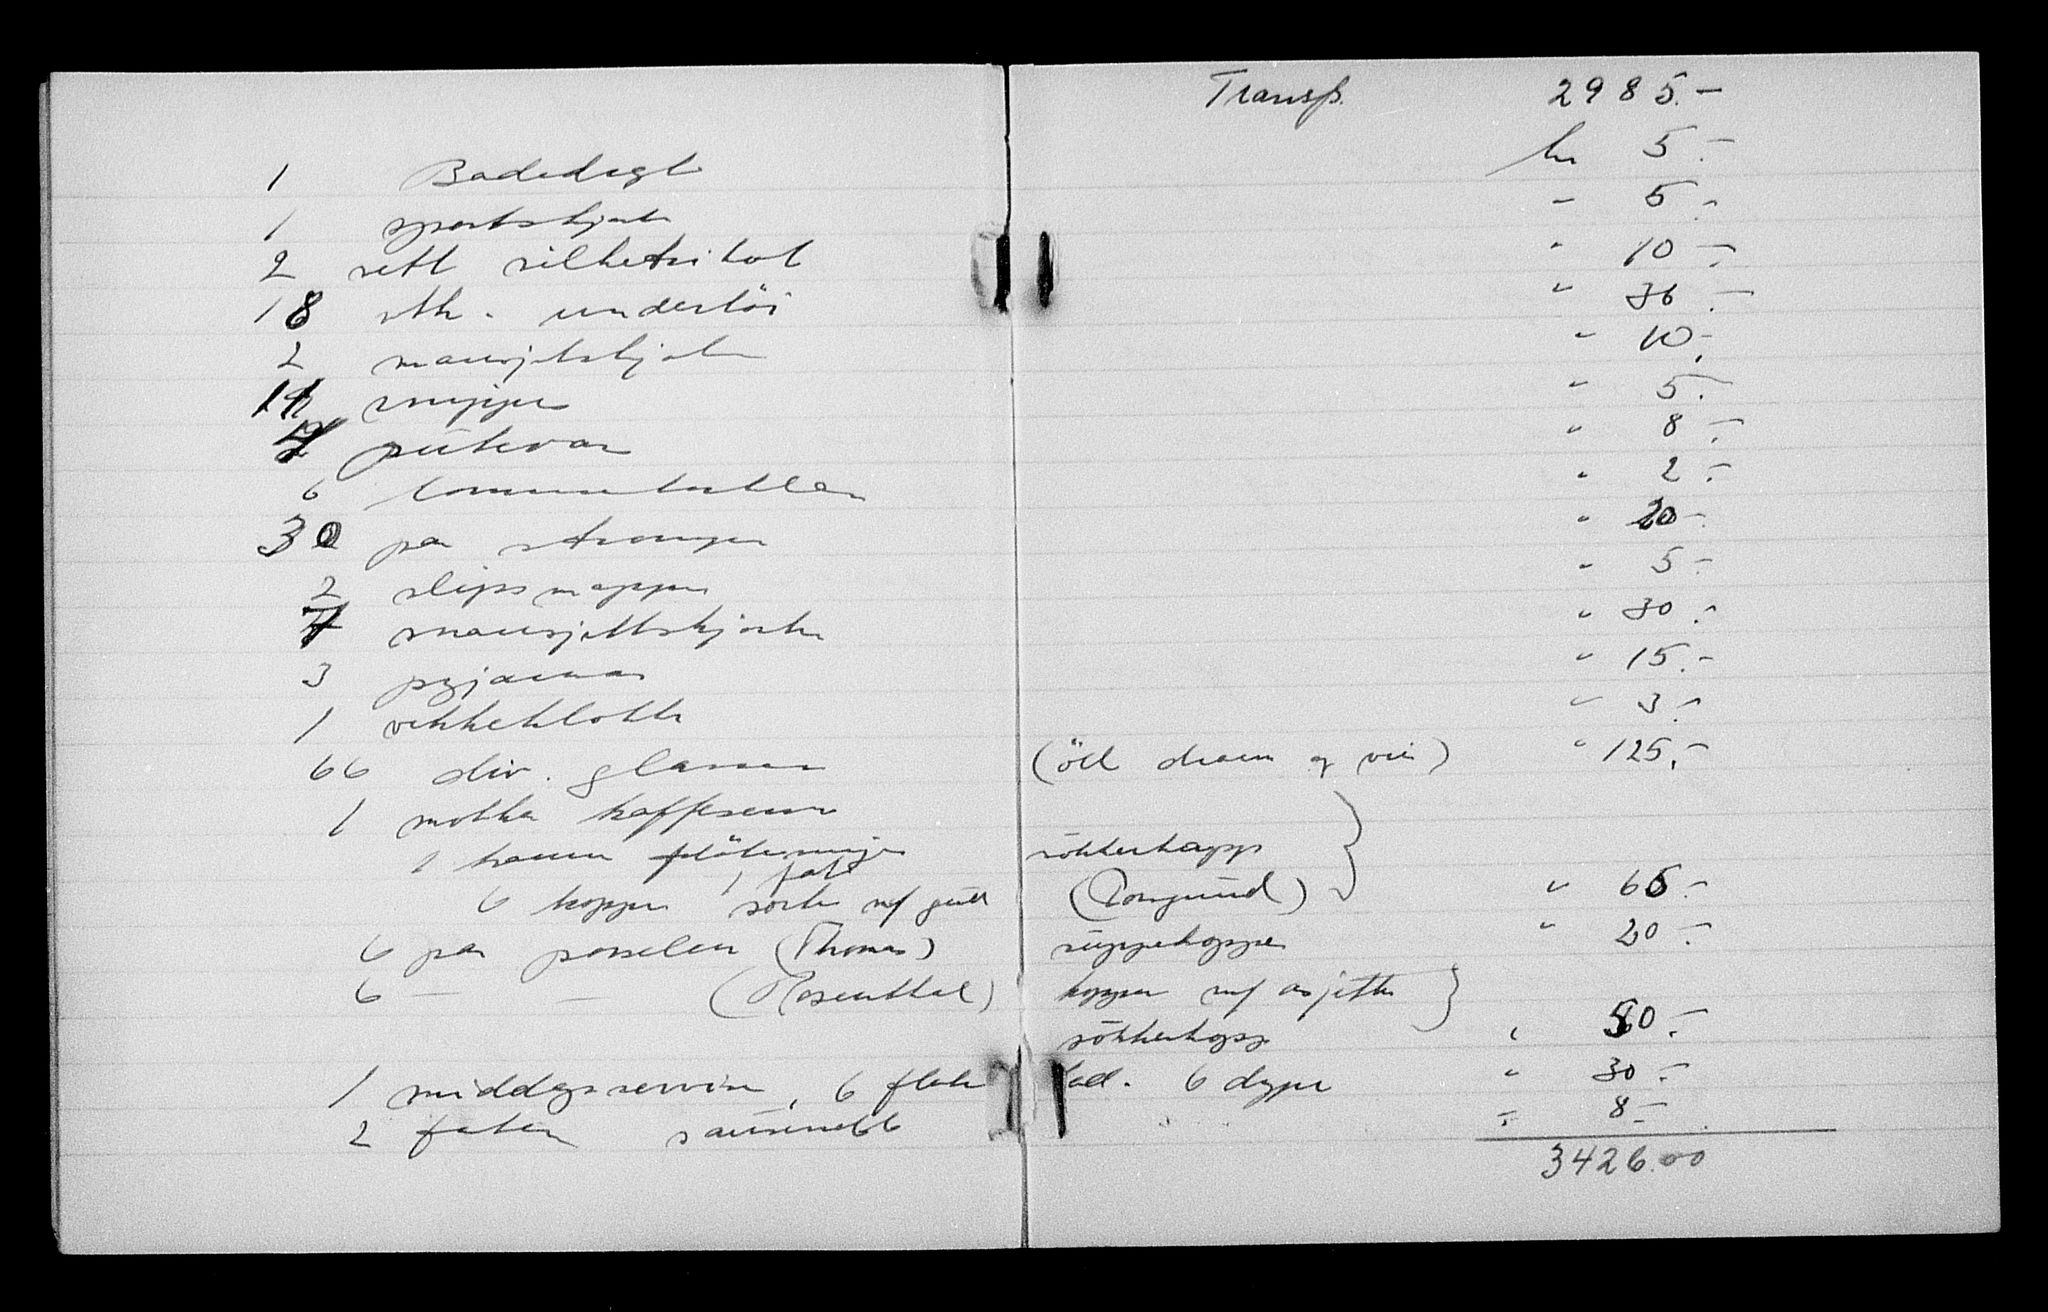 Transp. 2985.-
1 Badedragt kr 5.-
1 sportskjorte " 5.-
2 sett silketrikot " 10.-
18 stk. undertöi " 36.-
2 mansjetskjorter " 10.-
snipper " 5.-
putevar " 8.-
6 lommetörklær " 2.-
30 par strömper " 20.-
2 slipsmapper " 5.-
7 mansjettskjorter " 30.-
3 pyjamas " 15.-
1 vekkeklokke " 3.-
66 div. glasser (öll dram og vin) " 125.-
1 mokka kaffeservise
1 kanne flötemugge sökkerkopp
1 fat
6 kopper sorte m/ gull " 65.-
6 par porselen (Thomas) suppekopper " 20.-
6 — — (Rosenthal) kopper m/ asjetter
sökkerkopp " 50.-
1 middagsservise, 6 flate tall. 6 dype " 30.-
2 fater sausenebb " 8.-
3426.00